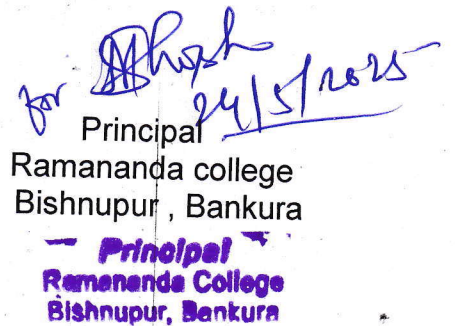 for Ghosh
24/5/2025
Principal
Ramananda college
Bishnupur , Bankura
Principal
Ramananda College
Bishnupur, Bankura